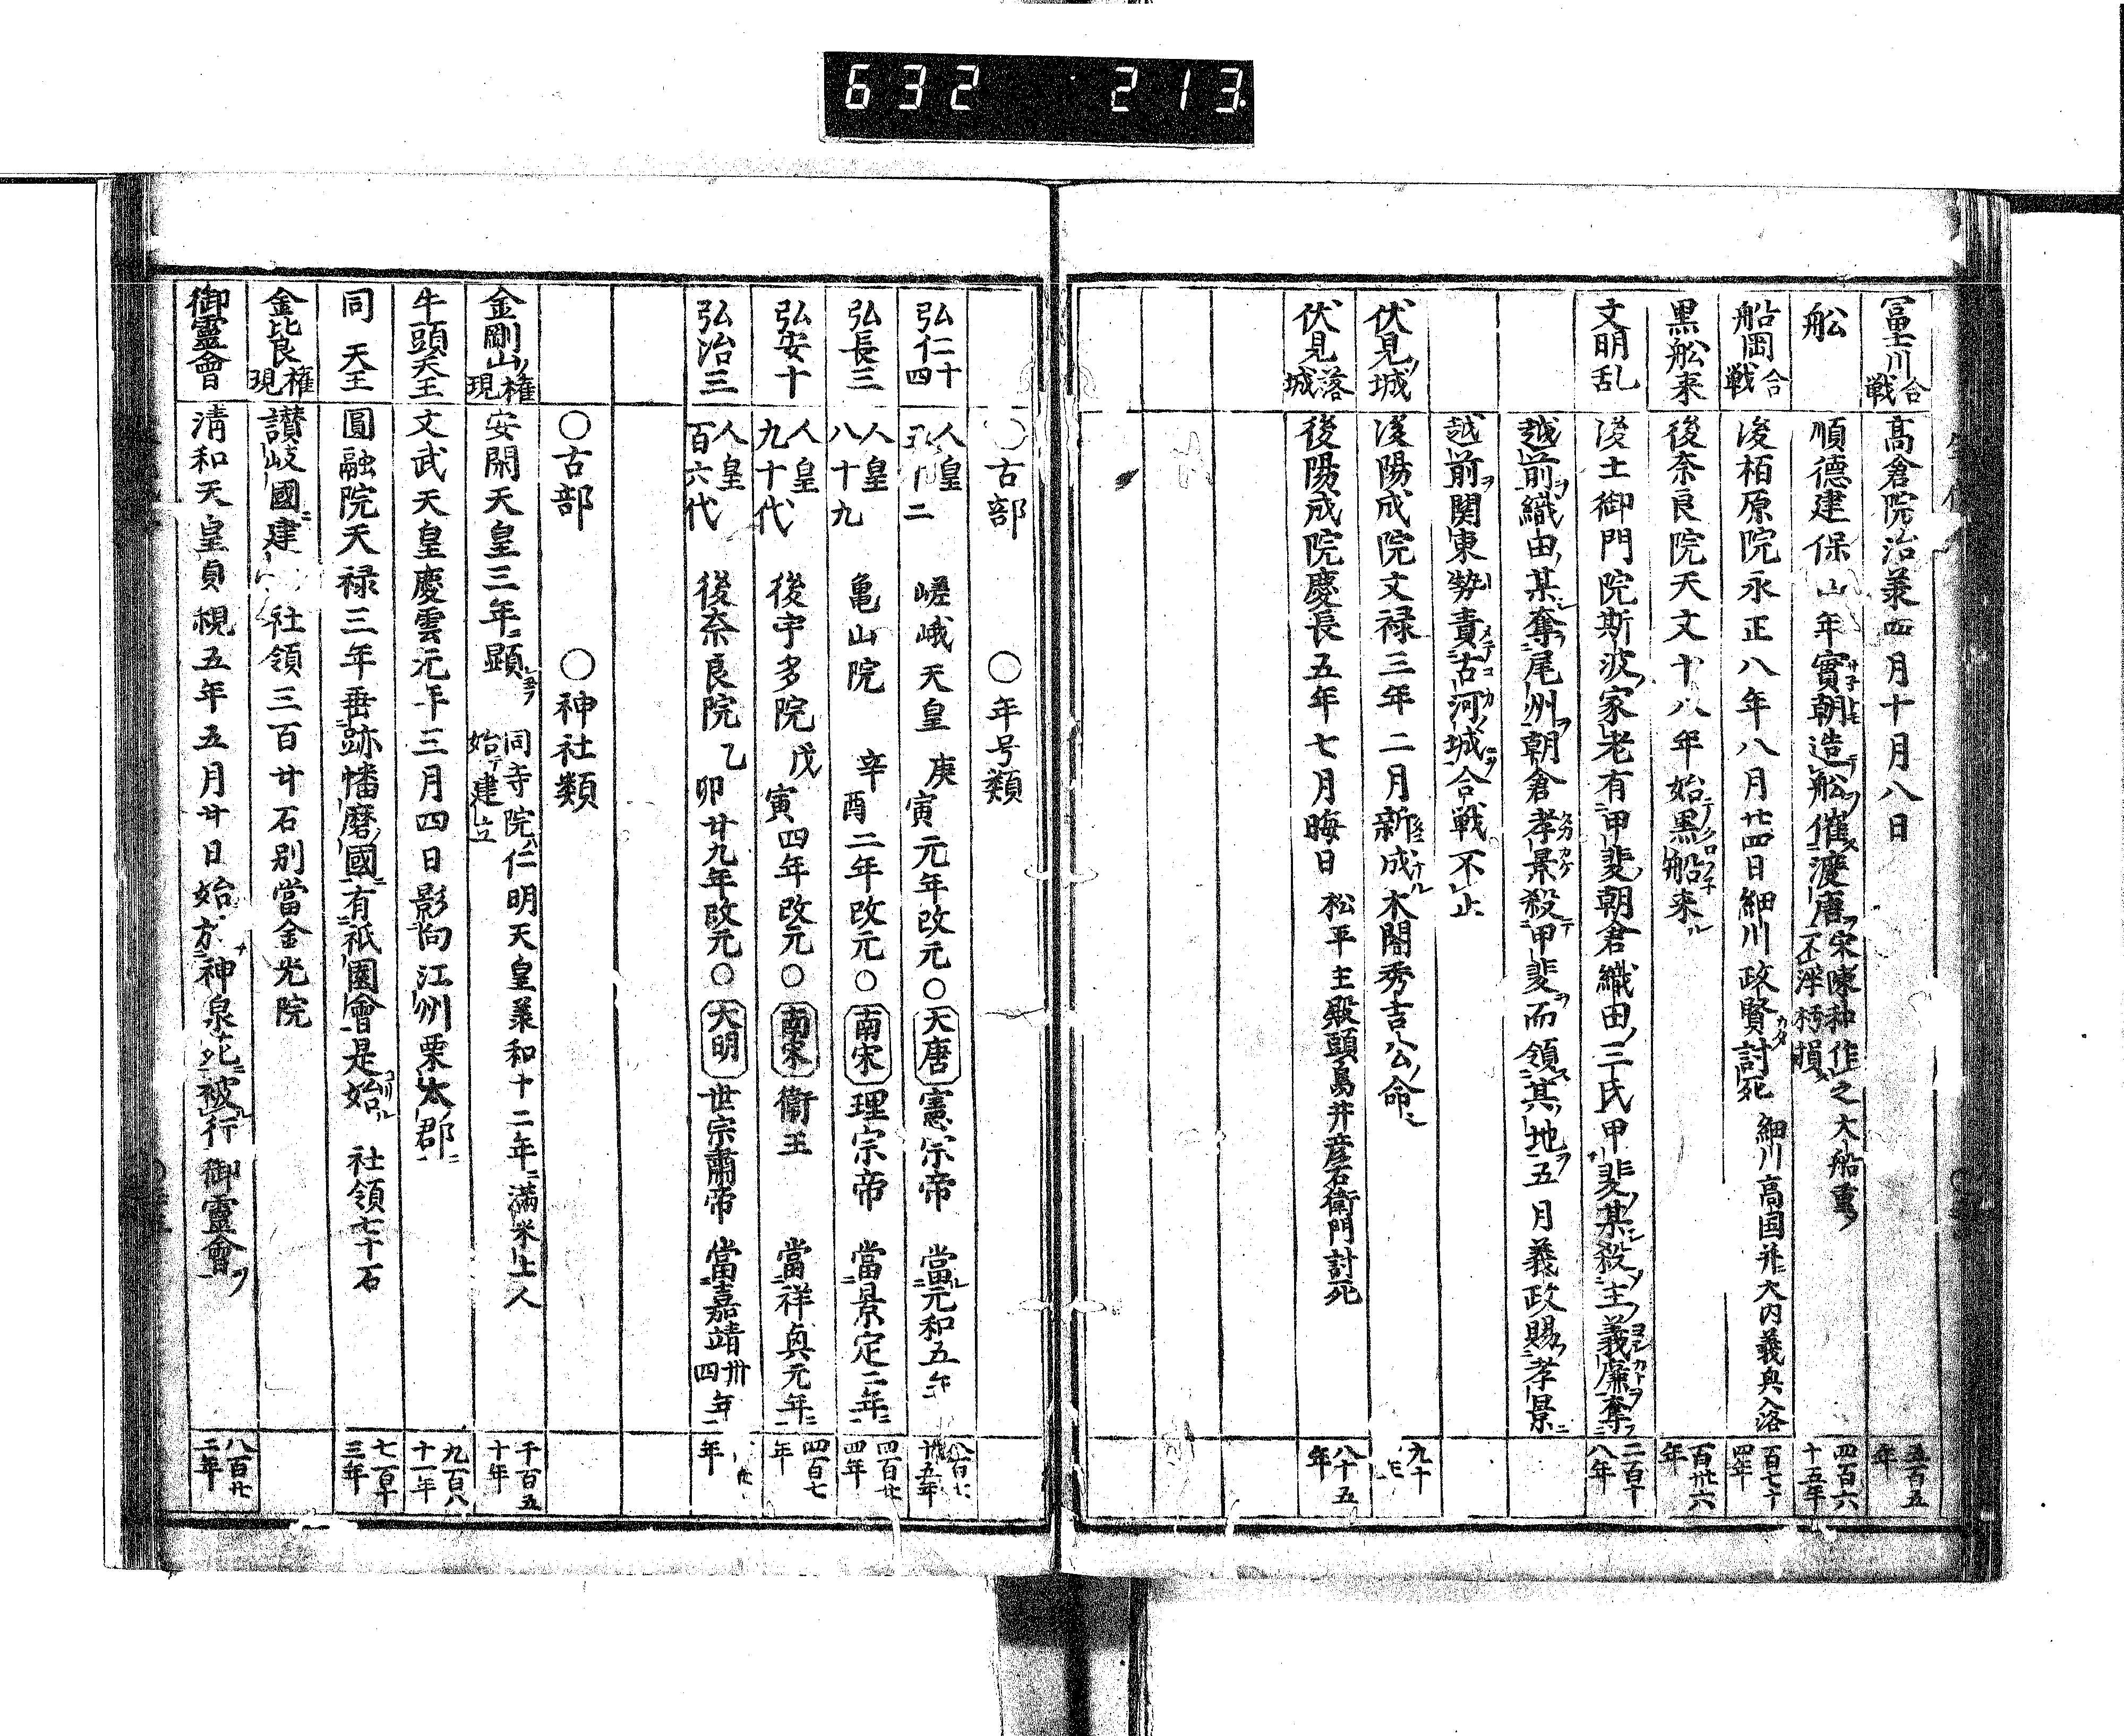 632 213
冨士川合戦 高倉院治羕四月十月八日 五百五年
舩 順德建保 年實朝造舩催渡唐宋陳和作之大船重不泮朽損 四百六十五年
船岡合戦 後柏原院永正八年八月廿四日細川政賢討死 細川高国并大内義興入洛 百七十四年
黒舩來 後奈良院天文十八年始黒船来 百卅六年
文明乱 後土御門院斯波家老有甲斐朝倉織田三氏甲斐某殺主義廉奪 二百十八年
越前織田某奪尾州朝倉孝景殺甲斐而領其地五月義政賜孝景
越前関東勢責古河城合戦不止
伏見城 後陽成院文禄三年二月新成太閤秀吉公命 九十
伏見城落 後陽成院慶長五年七月晦日 松平主殿頭鳥井彦右衛門討死 八十五年
○古部 ○年号類
弘仁十四 人皇 二 嵯峨天皇 庚寅元年改元○大唐憲宗帝 當元和五年
弘長三 人皇八十九 亀山院 辛酉二年改元○南宋理宗帝 當景定二年 四百廿四年
弘安十 人皇九十代 後宇多院 戊寅四年改元○南宋衞王 當祥興元年 四百七年
弘治三 人皇百六代 後奈良院 乙卯廿九年改元○大明世宗肅帝 當嘉靖卅四年 年
○古部 ○神社類
金剛山権現 安閑天皇三年顕 同寺院仁明天皇羕和十二年満米上人始建立 千百五十年
牛頭天王 文武天皇慶雲元年三月四日影向江州栗太郡 九百八十一年
同天王 圓融院天禄三年垂跡播磨國有祇園會是始 社領七十石 七百十三年
金毗羅権現 讃岐國建 社領三百廿石別當金光院
御靈會 清和天皇貞観五年五月廿日始於神泉苑被行御靈會 八百廿二年